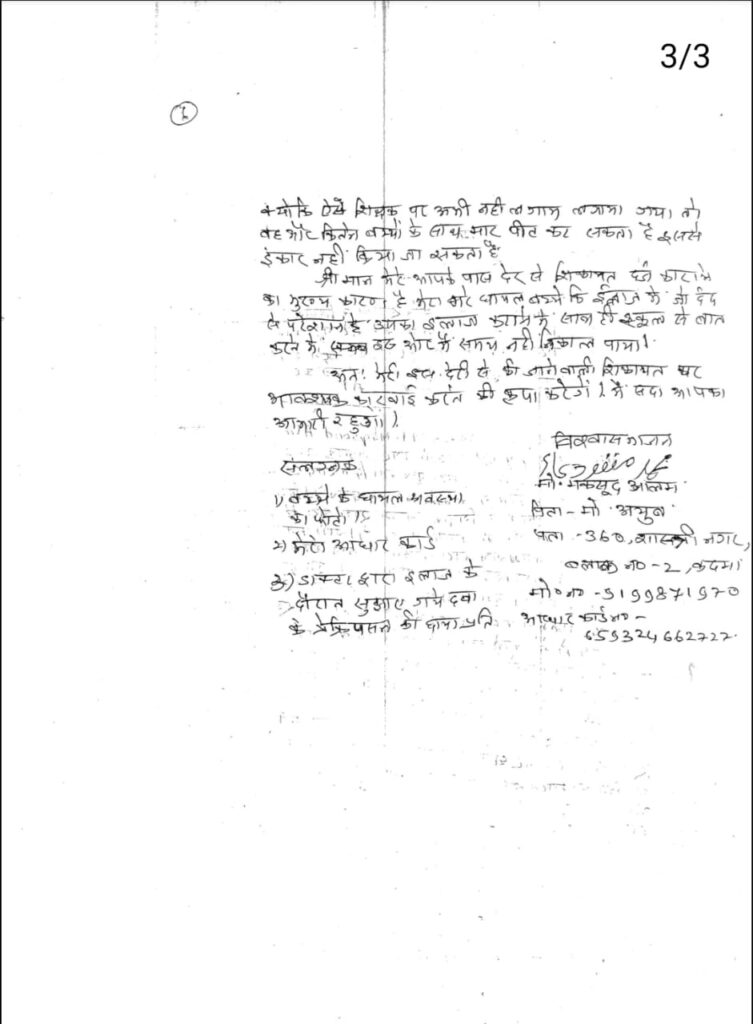 3/3
क्योकि ऐसे शिक्षक पर अभी नही लगाम लगाया गया तो
वह और कितने बच्चों के साथ मार पीट कर सकता है इससे
इंकार नहीं किया जा सकता है
श्री मान मेरे आपके पास देर से शिकायत दर्ज कराने
का मुख्य कारण है मेरा और घायल बच्चे कि ईलाज मे जो दर्द
से परेशान है उसका ईलाज कराने मे साथ ही स्कूल से बात
करने मे और मै समय नही निकाल पाया।
अतः मेरी इस देरी से की जाने वाली शिकायत पर
आवश्यक कारवाई करने की कृपा करेगें। मै सदा आपका
आभारी रहुंगा।
विश्वासभाजन
मो॰ मकसूद आलम
पिता - मो
पता - 360, शास्त्री नगर,
ब्लाक नो - 2, कदमा
मो॰ न॰ - 9199871970
आधार कार्ड न॰ -
659324662722
संलग्नक
1) बच्चे के घायल अवस्था
का फोटो
2) मेरा आधार कार्ड
3) डाक्टर द्वारा इलाज के
दौरान सुझाए गये दवा
के प्रेक्रिपसन की छाया प्रति